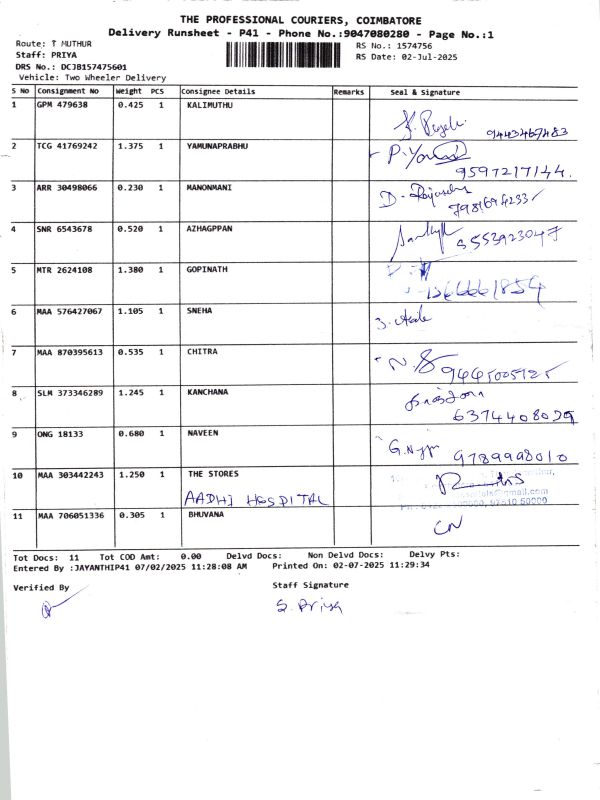 THE PROFESSIONAL COURIERS, COIMBATORE
Delivery Runsheet - P41 - Phone No.:9047080280 - Page No.:1
Route: T MUTHUR
RS No.: 1574756
Staff: PRIYA
RS Date: 02-Jul-2025
DRS No.: DCJB157475601
Vehicle: Two Wheeler Delivery
S No Consignment No Weight PCS Consignee Details Remarks Seal & Signature
1 GPM 479638 0.425 1 KALIMUTHU
2 TCG 41769242 1.375 1 YAMUNAPRABHU
9597217144.
3 ARR 30498066 0.230 1 MANONMANI
4 SNR 6543678 0.520 1 AZHAGPPAN
5 MTR 2624108 1.380 1 GOPINATH
6 MAA 576427067 1.105 1 SNEHA
7 MAA 870395613 0.535 1 CHITRA
8 SLM 373346289 1.245 1 KANCHANA
6374408029
9 ONG 18133 0.680 1 NAVEEN
9789998010
10 MAA 303442243 1.250 1 THE STORES
AADHI HOSPITAL
11 MAA 706051336 0.305 1 BHUVANA
CN
Tot Docs: 11 Tot COD Amt: 0.00 Delvd Docs: Non Delvd Docs: Delvy Pts:
Entered By :JAYANTHIP41 07/02/2025 11:28:08 AM Printed On: 02-07-2025 11:29:34
Verified By Staff Signature
S. Priya